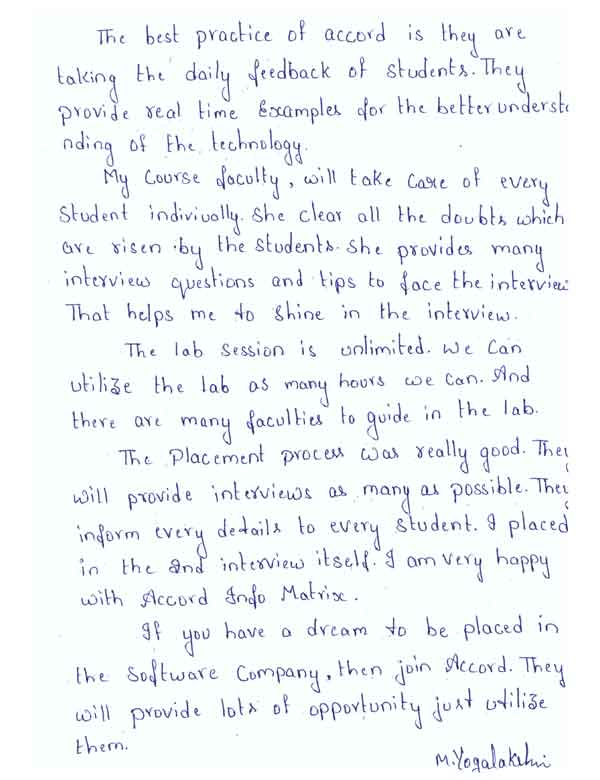 The best practice of accord is they are
taking the daily feedback of students. They
provide real time Examples for the better understa
nding of the technology.
My Course faculty, will take care of every
Student indiviually. She clear all the doubts which
are risen by the students. She provides many
interview questions and tips to face the interview
That helps me to Shine in the interview.
The lab Session is unlimited. We Can
utilize the lab as many hours we can. And
there are many faculties to guide in the lab.
The Placement process was really good. They
will provide interviews as many as possible. They
inform every details to every student. I placed
in the 2nd interview itself. I am very happy
with Accord Info Matrix.
If you have a dream to be placed in
the Software Company, then join Accord. They
will provide lots of opportunity just utilize
them.
M.Yogalakshmi